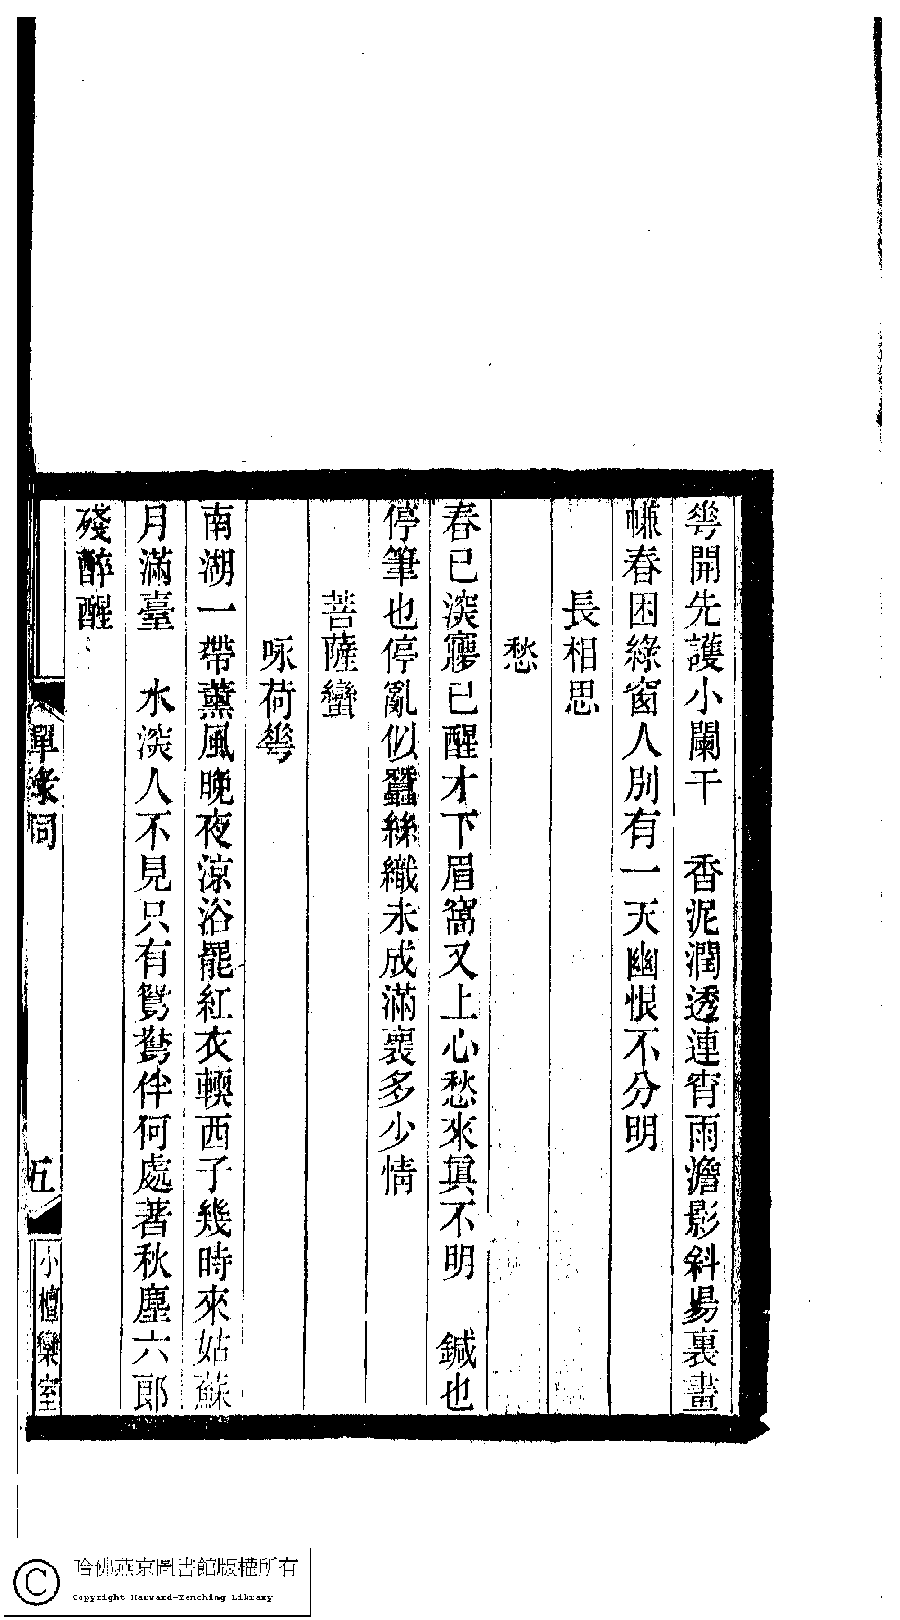 蕚開先護小闌干　香泥潤透連宵雨澹影斜昜裏畫
㡘春困綠窗人別有一天幽恨不分明
長相思
愁
春已深寱已醒才下眉窩又上心愁來眞不明　鍼也
停筆也停亂似蠶絲織未成滿襄多少情
菩薩蠻
咏荷蕚
南湖一帶薰風晚夜涼浴罷紅衣輭西子幾時來姑蘇
月滿臺　水深人不見只有鴛鴦伴何處著秋塵六郎
殘醉醒
五
小檀欒室
哈佛燕京圖書館版權所有
Copyright Harvard-Yenching Library